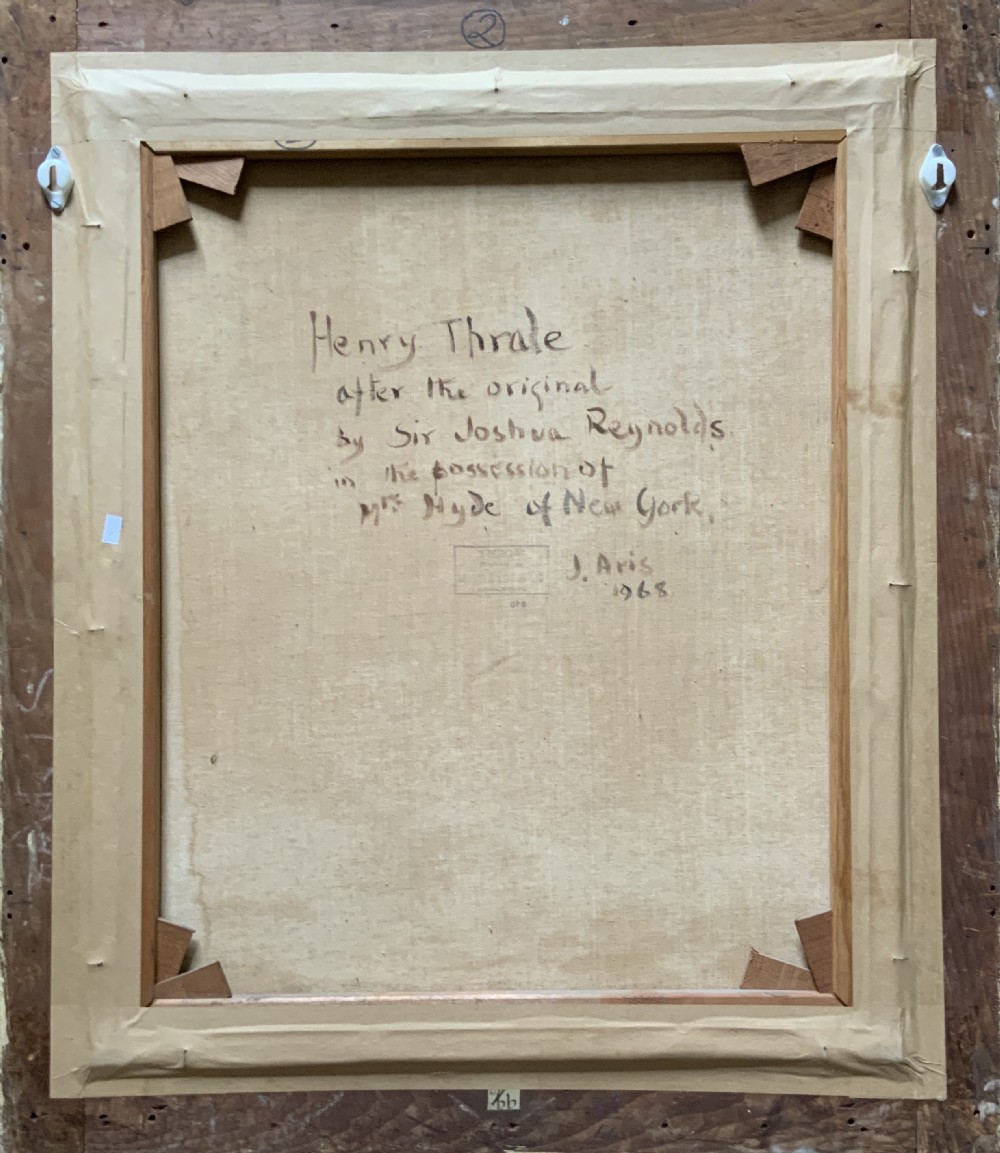 2
Henry Thrale
after the original
by Sir Joshua Reynolds.
in the possession of
Mrs Hyde of New York.
J. Aris
1968